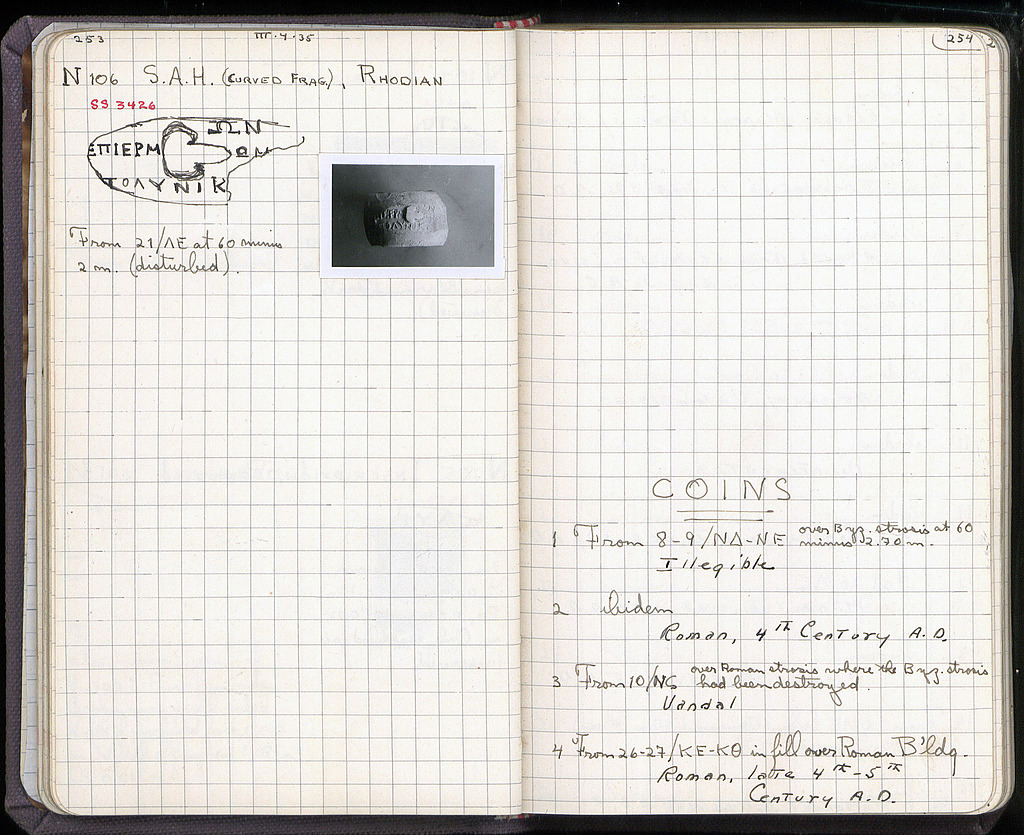 253
III·4·35
N 106 S.A.H. (CURVED FRAG.), RHODIAN
SS 3426
ΩΝ
ΕΠΙΕΡΜ
ΩΝ
ΠΟΛΥΝΙΚ
From 21/ΛΕ at 60 minus
2 m. (disturbed).
254
COINS
1 From 8-9/ΝΔ-ΝΕ over Byz. strosis at 60
minus 2.70 m.
Illegible
2 ibidem
Roman, 4TH CENTURY A.D.
3 From 10/ΝΣ over Roman strosis where the Byz. strosis
had been destroyed.
Vandal
4 From 26-27/ΚΕ-ΚΘ in fill over Roman B'ldg.
Roman, late 4th-5TH
CENTURY A.D.